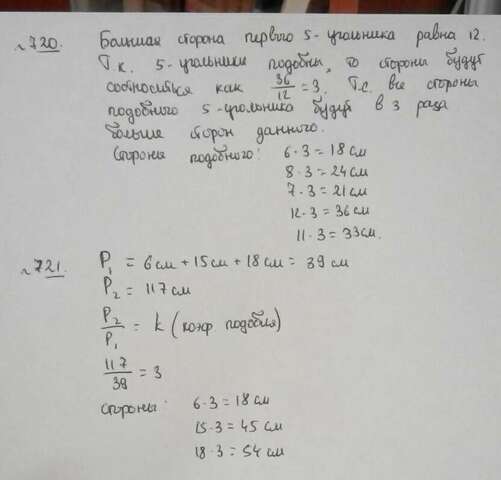 №720. Большая сторона первого 5-угольника равна 12.
Т.к. 5-угольники подобны, то стороны будут
соотноситься как 36/12 = 3. Т.е. все стороны
подобного 5-угольника будут в 3 раза
больше сторон данного.
Стороны подобного: 6·3 = 18 см
8·3 = 24 см
7·3 = 21 см
12·3 = 36 см
11·3 = 33 см.
№721. P₁ = 6 см + 15 см + 18 см = 39 см
P₂ = 117 см
P₂/P₁ = k (коэф подобия)
117/39 = 3
стороны: 6·3 = 18 см
15·3 = 45 см
18·3 = 54 см